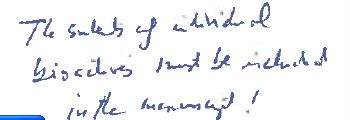 The of individual
bioactives must be included
in the manuscript!